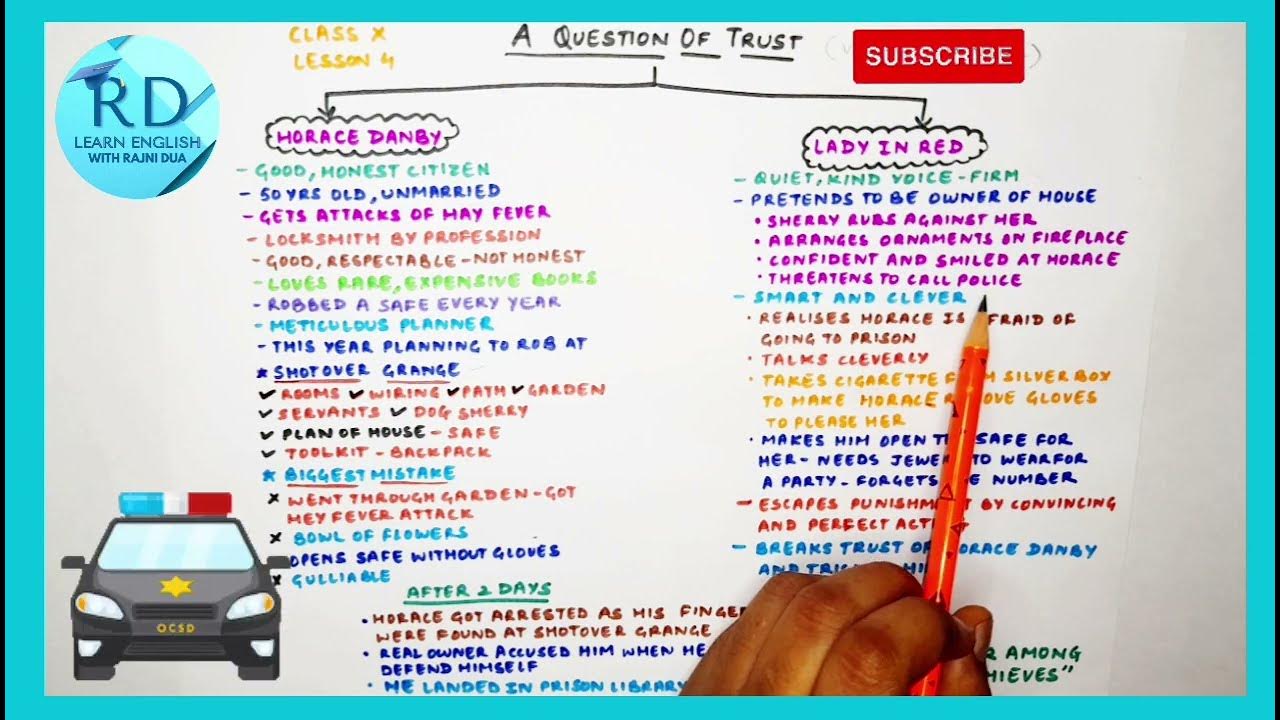 CLASS X
LESSON 4
A QUESTION OF TRUST
SUBSCRIBE
RD
LEARN ENGLISH
WITH RAJNI DUA
HORACE DANBY
- GOOD, HONEST CITIZEN
- 50 YRS OLD, UNMARRIED
- GETS ATTACKS OF HAY FEVER
- LOCKSMITH BY PROFESSION
- GOOD, RESPECTABLE - NOT HONEST
- LOVES RARE, EXPENSIVE BOOKS
- ROBBED A SAFE EVERY YEAR
- METICULOUS PLANNER
- THIS YEAR PLANNING TO ROB AT
* SHOTOVER GRANGE
✓ ROOMS ✓ WIRING ✓ PATH ✓ GARDEN
✓ SERVANTS ✓ DOG SHERRY
✓ PLAN OF HOUSE - SAFE
✓ TOOLKIT - BACKPACK
* BIGGEST MISTAKE
x WENT THROUGH GARDEN - GOT
HEY FEVER ATTACK
x BOWL OF FLOWERS
OPENS SAFE WITHOUT GLOVES
x GULLIABLE
LADY IN RED
- QUIET, KIND VOICE - FIRM
- PRETENDS TO BE OWNER OF HOUSE
• SHERRY RUBS AGAINST HER
• ARRANGES ORNAMENTS ON FIREPLACE
• CONFIDENT AND SMILED AT HORACE
• THREATENS TO CALL POLICE
- SMART AND CLEVER
• REALISES HORACE IS FRAID OF
GOING TO PRISON
• TALKS CLEVERLY
• TAKES CIGARETTE F M SILVER BOX
TO MAKE HORACE R OVE GLOVES
TO PLEASE HER
• MAKES HIM OPEN T SAFE FOR
HER - NEEDS JEWE TO WEARFOR
A PARTY - FORGETS E NUMBER
- ESCAPES PUNISHM BY CONVINCING
AND PERFECT ACTI
- BREAKS TRUST OF HORACE DANBY
AND TRI HI
AFTER 2 DAYS
• HORACE GOT ARRESTED AS HIS FINGE
WERE FOUND AT SHOTOVER GRANGE
• REAL OWNER ACCUSED HIM WHEN HE
DEFEND HIMSELF
• HE LANDED IN PRISON LIBRARY
R AMONG
HIEVES"
OCSD